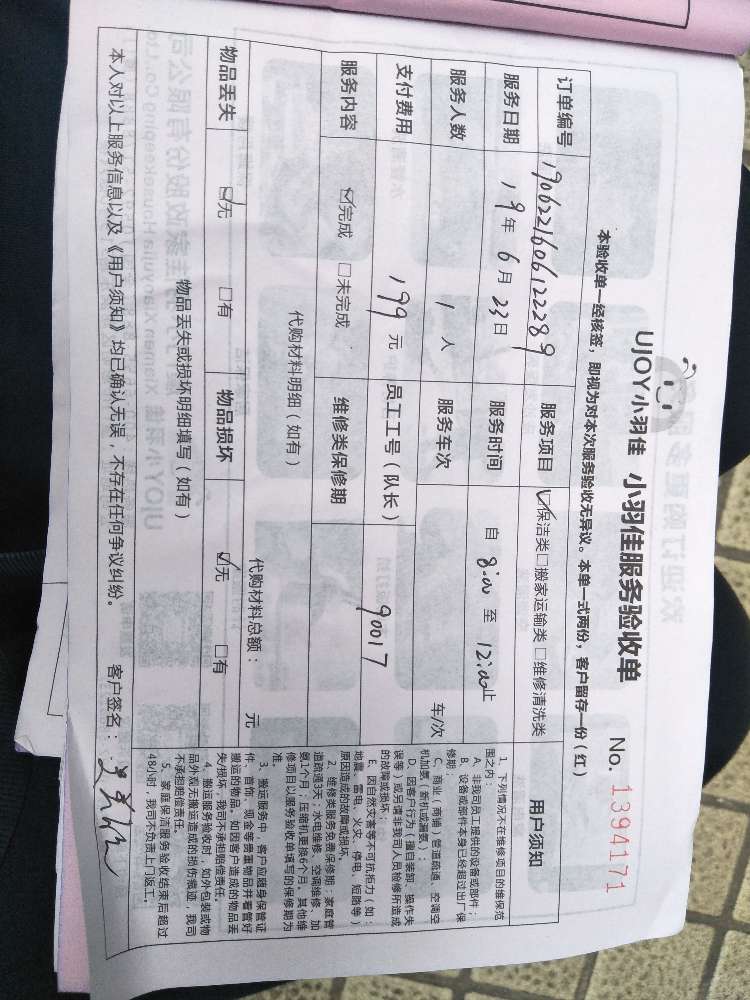 UJOY小羽佳 小羽佳服务验收单
No. 1394171
本验收单一经核签,即视为对本次服务验收无异议。本单一式两份,客户留存一份(红)
订单编号 1906221606122289 服务项目 ☑保洁类□搬家运输类□维修清洗类
服务日期 19年6月23日 服务时间 自 8:00 至 12:00止
服务人数 1人 服务车次 车/次
支付费用 199元 员工工号(队长) 90017
服务内容 ☑完成 □未完成 维修类保修期
代购材料明细(如有)
代购材料总额: 元
物品丢失 ☑无 □有 物品损坏 ☑无 □有
物品丢失或损坏明细填写(如有)
本人对以上服务信息以及《用户须知》均已确认无误,不存在任何争议纠纷。 客户签名:
用户须知
1、下列情况不在维修项目的维保范
围之内:
A、非我司员工提供的设备或部件;
B、设备或部件本身已经超过出厂保
修期;
C、商业(商铺)管道疏通、空调空
机加氨(新机或漏氨);
D、因客户行为(擅自装卸、操作失
误等)或另请非我司人员检修所造成
的故障或损坏;
E、因自然灾害等不可抗拒力(如:
地震、雷电、火灾、停电、短路等)
原因造成的故障或损坏。
2、维修类服务免费保修期:家庭管
道疏通3天;水电维修、空调维修、加
氨1个月;压缩机更换6个月,其他维
修项目以服务验收单填写的保修期为
准。
3、搬运服务中,客户应随身保管证
件、首饰、现金等贵重物品并看管好
搬运的物品。如因客户造成的物品丢
失/损坏,我司不承担赔偿责任。
4、搬运服务验收时,如外包装或物
品外观无搬运造成的损伤痕迹,我司
不承担赔偿责任。
5、家庭保洁服务验收结束后超过
48小时,我司不负责上门返工。